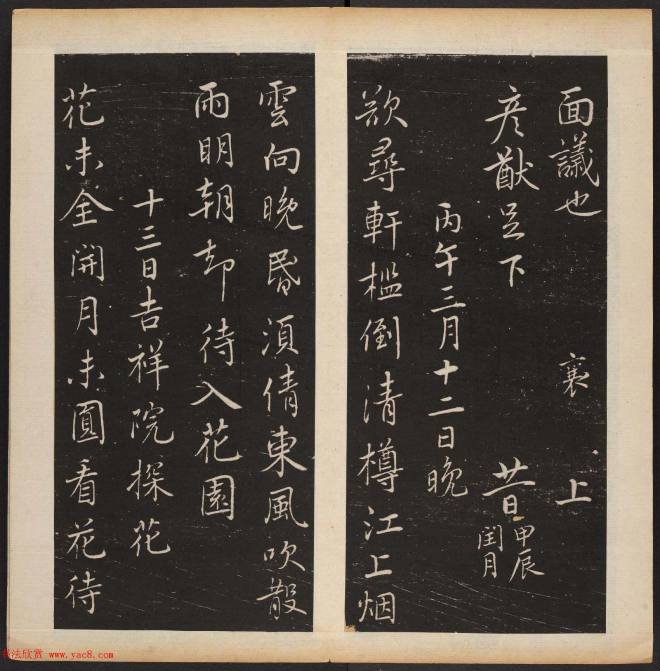 面議也　襄　上
彥猷足下　昔甲辰
閏月
丙午三月十二日晚
欲尋軒檻倒清樽江上烟
雲向晚昏須倩東風吹散
雨明朝却待入花園
十三日吉祥院探花
花未全開月未圓看花待
书法欣赏 www.yac8.com